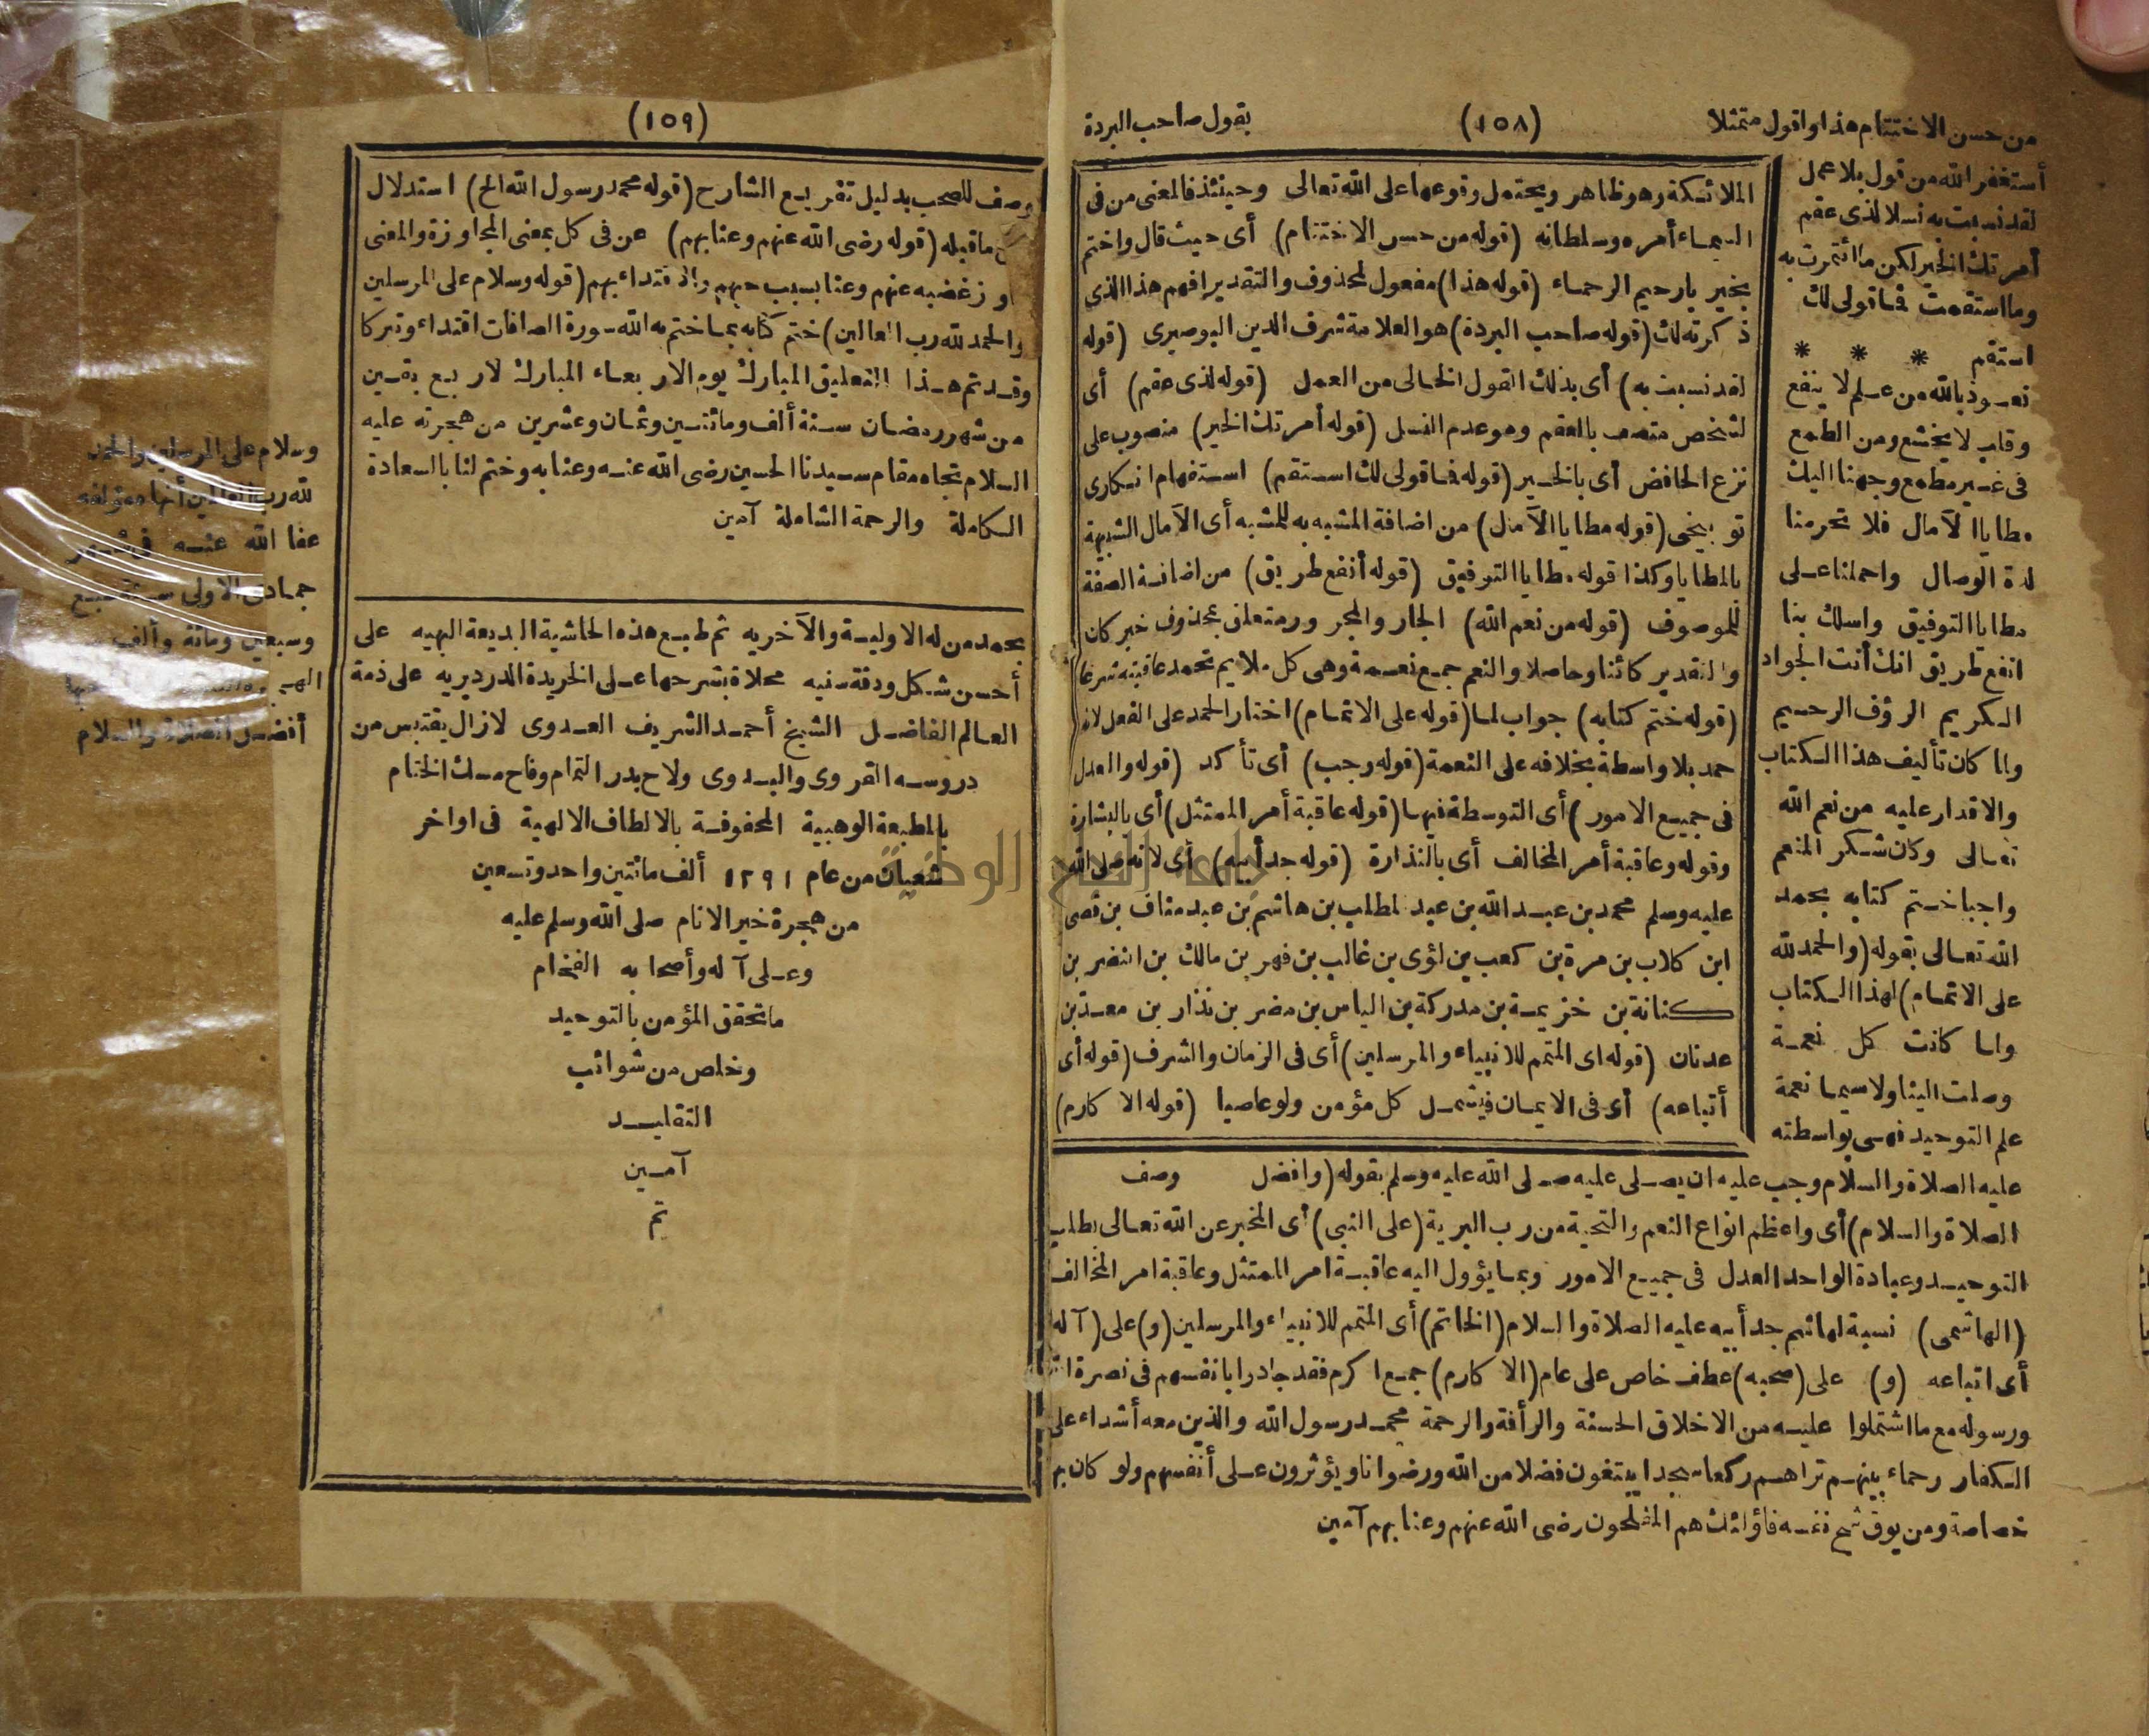 من حسن الاختتام هذا واقول متمثلا
(١٠٨)
بقول صاحب البردة
أستغفر الله من قول بلا عمل
لقد نسبت به نسلا لذى عقم
أمرتك الخير لكن ما ائتمرت به
وما استقمت فما قولى لك
استقم * * *
نعوذ بالله من علم لا ينفع
وقلب لا يخشع ومن الطمع
فى غير مطمع وجهنا اليك
مطايا الآمال فلا تحرمنا
لذة الوصال واحملنا على
مطايا التوفيق واسلك بنا
انفع طريق انك أنت الجواد
الكريم الرؤف الرحيم
ولما كان تأليف هذا الكتاب
والاقدار عليه من نعم الله
تعالى وكان شكر المنعم
واجبا ختم كتابه بحمد
الله تعالى بقوله (والحمد لله
على الاتمام) لهذا الكتاب
ولما كانت كل نعمة
وصلت الينا ولا سيما نعمة
علم التوحيد فهى بواسطته
عليه الصلاة والسلام وجب عليه ان يصلى عليه صلى الله عليه وسلم بقوله (وافضل
الصلاة والسلام) أى واعظم انواع النعم والتحية من رب البرية (على النبى) أى المخبر عن الله تعالى بطلب
التوحيد وعبادة الواحد العدل فى جميع الامور وبما يؤول اليه عاقبة امر الممتثل وعاقبة امر المخالف
(الهاشمى) نسبة لهاشم جد أبيه عليه الصلاة والسلام (الخاتم) أى المتمم للانبياء والمرسلين (و) على (آله
أى اتباعه (و) على (صحبه) عطف خاص على عام (الاكارم) جمع اكرم فقد جادوا بانفسهم فى نصرة
ورسوله مع ما اشتملوا عليه من الاخلاق الحسنة والرأفة والرحمة محمد رسول الله والذين معه أشداء على
الكفار رحماء بينهم تراهم ركعا سجدا يبتغون فضلا من الله ورضوانا ويؤثرون على أنفسهم ولو كان بهم
خصاصة ومن يوق شح نفسه فاؤلئك هم المفلحون رضى الله عنهم وعنا بهم آمين
الملائكة وهو ظاهر ويحتمل وقوعها على الله تعالى وحينئذ فالمعنى من فى
السماء أمره وسلطانه (قوله من حسن الاختتام) أى حيث قال واختم
بخير يا رحيم الرحماء (قوله هذا) مفعول لمحذوف والتقدير افهم هذا الذى
ذكرته لك (قوله صاحب البردة) هو العلامة شرف الدين البوصيرى (قوله
لقد نسبت به) أى بذلك القول الخالى من العمل (قوله لذى عقم) أى
لشخص متصف بالعقم وهو عدم النسل (قوله أمرتك الخير) منصوب على
نزع الخافض أى بالخير (قوله فما قولى لك استقم) استفهام انكارى
توبيخى (قوله مطايا الآمال) من اضافة المشبه به للمشبه أى الآمال الشبيهة
بالمطايا وكذا قوله مطايا التوفيق (قوله أنفع طريق) من اضافة الصفة
للموصوف (قوله من نعم الله) الجار والمجرور متعلق بمحذوف خبر كان
والتقدير كائنا وحاصلا والنعم جمع نعمة وهى كل ملايم تحمد عاقبته شرعا
(قوله ختم كتابه) جواب لما (قوله على الاتمام) اختار الحمد على الفعل لانه
حمد بلا واسطة بخلافه على النعمة (قوله وجب) أى تأكد (قوله والعدل
فى جميع الامور) أى التوسط فيها (قوله عاقبة أمر الممتثل) أى بالبشارة
وقوله وعاقبة أمر المخالف أى بالنذارة (قوله جد أبيه) أى لانه صلى الله
عليه وسلم محمد بن عبد الله بن عبد المطلب بن هاشم بن عبد مناف بن قصى
ابن كلاب بن مرة بن كعب بن لؤى بن غالب بن فهر بن مالك بن النضر بن
كنانة بن خزيمة بن مدركة بن الياس بن مضر بن نزار بن معد بن
عدنان (قوله اى المتمم للانبياء والمرسلين) أى فى الزمان والشرف (قوله أى
أتباعه) أى فى الايمان فيشمل كل مؤمن ولو عاصيا (قوله الاكارم)
وصف
(١٠٩)
وصف للصحب بدليل تفريع الشارح (قوله محمد رسول الله الخ) استدلال
ما قبله (قوله رضى الله عنهم وعنا بهم) عن فى كل بمعنى المجاوزة والمعنى
وز غضبه عنهم وعنا بسبب حبهم والاقتداء بهم (قوله وسلام على المرسلين
والحمد لله رب العالمين) ختم كتابه بما ختم به الله سورة الصافات اقتداء وتبركا
وقد تم هذا التعليق المبارك يوم الاربعاء المبارك لاربع بقين
من شهر رمضان سنة ألف ومائتين وثمان وعشرين من هجرته عليه
السلام تجاه مقام سيدنا الحسين رضى الله عنه وعنا به وختم لنا بالسعادة
الكاملة والرحمة الشاملة آمين
بحمد من له الاولية والآخريه تم طبع هذه الحاشية البديعة البهيه على
أحسن شكل ودقة سنيه محلاة بشرحها على الخريدة الدرديريه على ذمة
العالم الفاضل الشيخ أحمد الشريف العدوى لازال يقتبس من
دروسه القروى والبدوى ولاح بدر التمام وفاح مسك الختام
بالمطبعة الوهبية المحفوفة بالالطاف الالهية فى اواخر
شعبان من عام ١٢٩١ ألف مائتين واحد وتسعين
من هجرة خير الانام صلى الله وسلم عليه
وعلى آله وأصحابه الفخام
ما تحقق المؤمن بالتوحيد
وخلص من شوائب
التقليد
آمين
تم
وسلام على المرسلين والحمد
لله رب العالمين أنهاه مؤلفه
عفا الله عنه فى شهر
جمادى الاولى سنة
وسبعين ومائة وألف
أفضل الصلاة والسلام
جامعة النجاح الوطنية